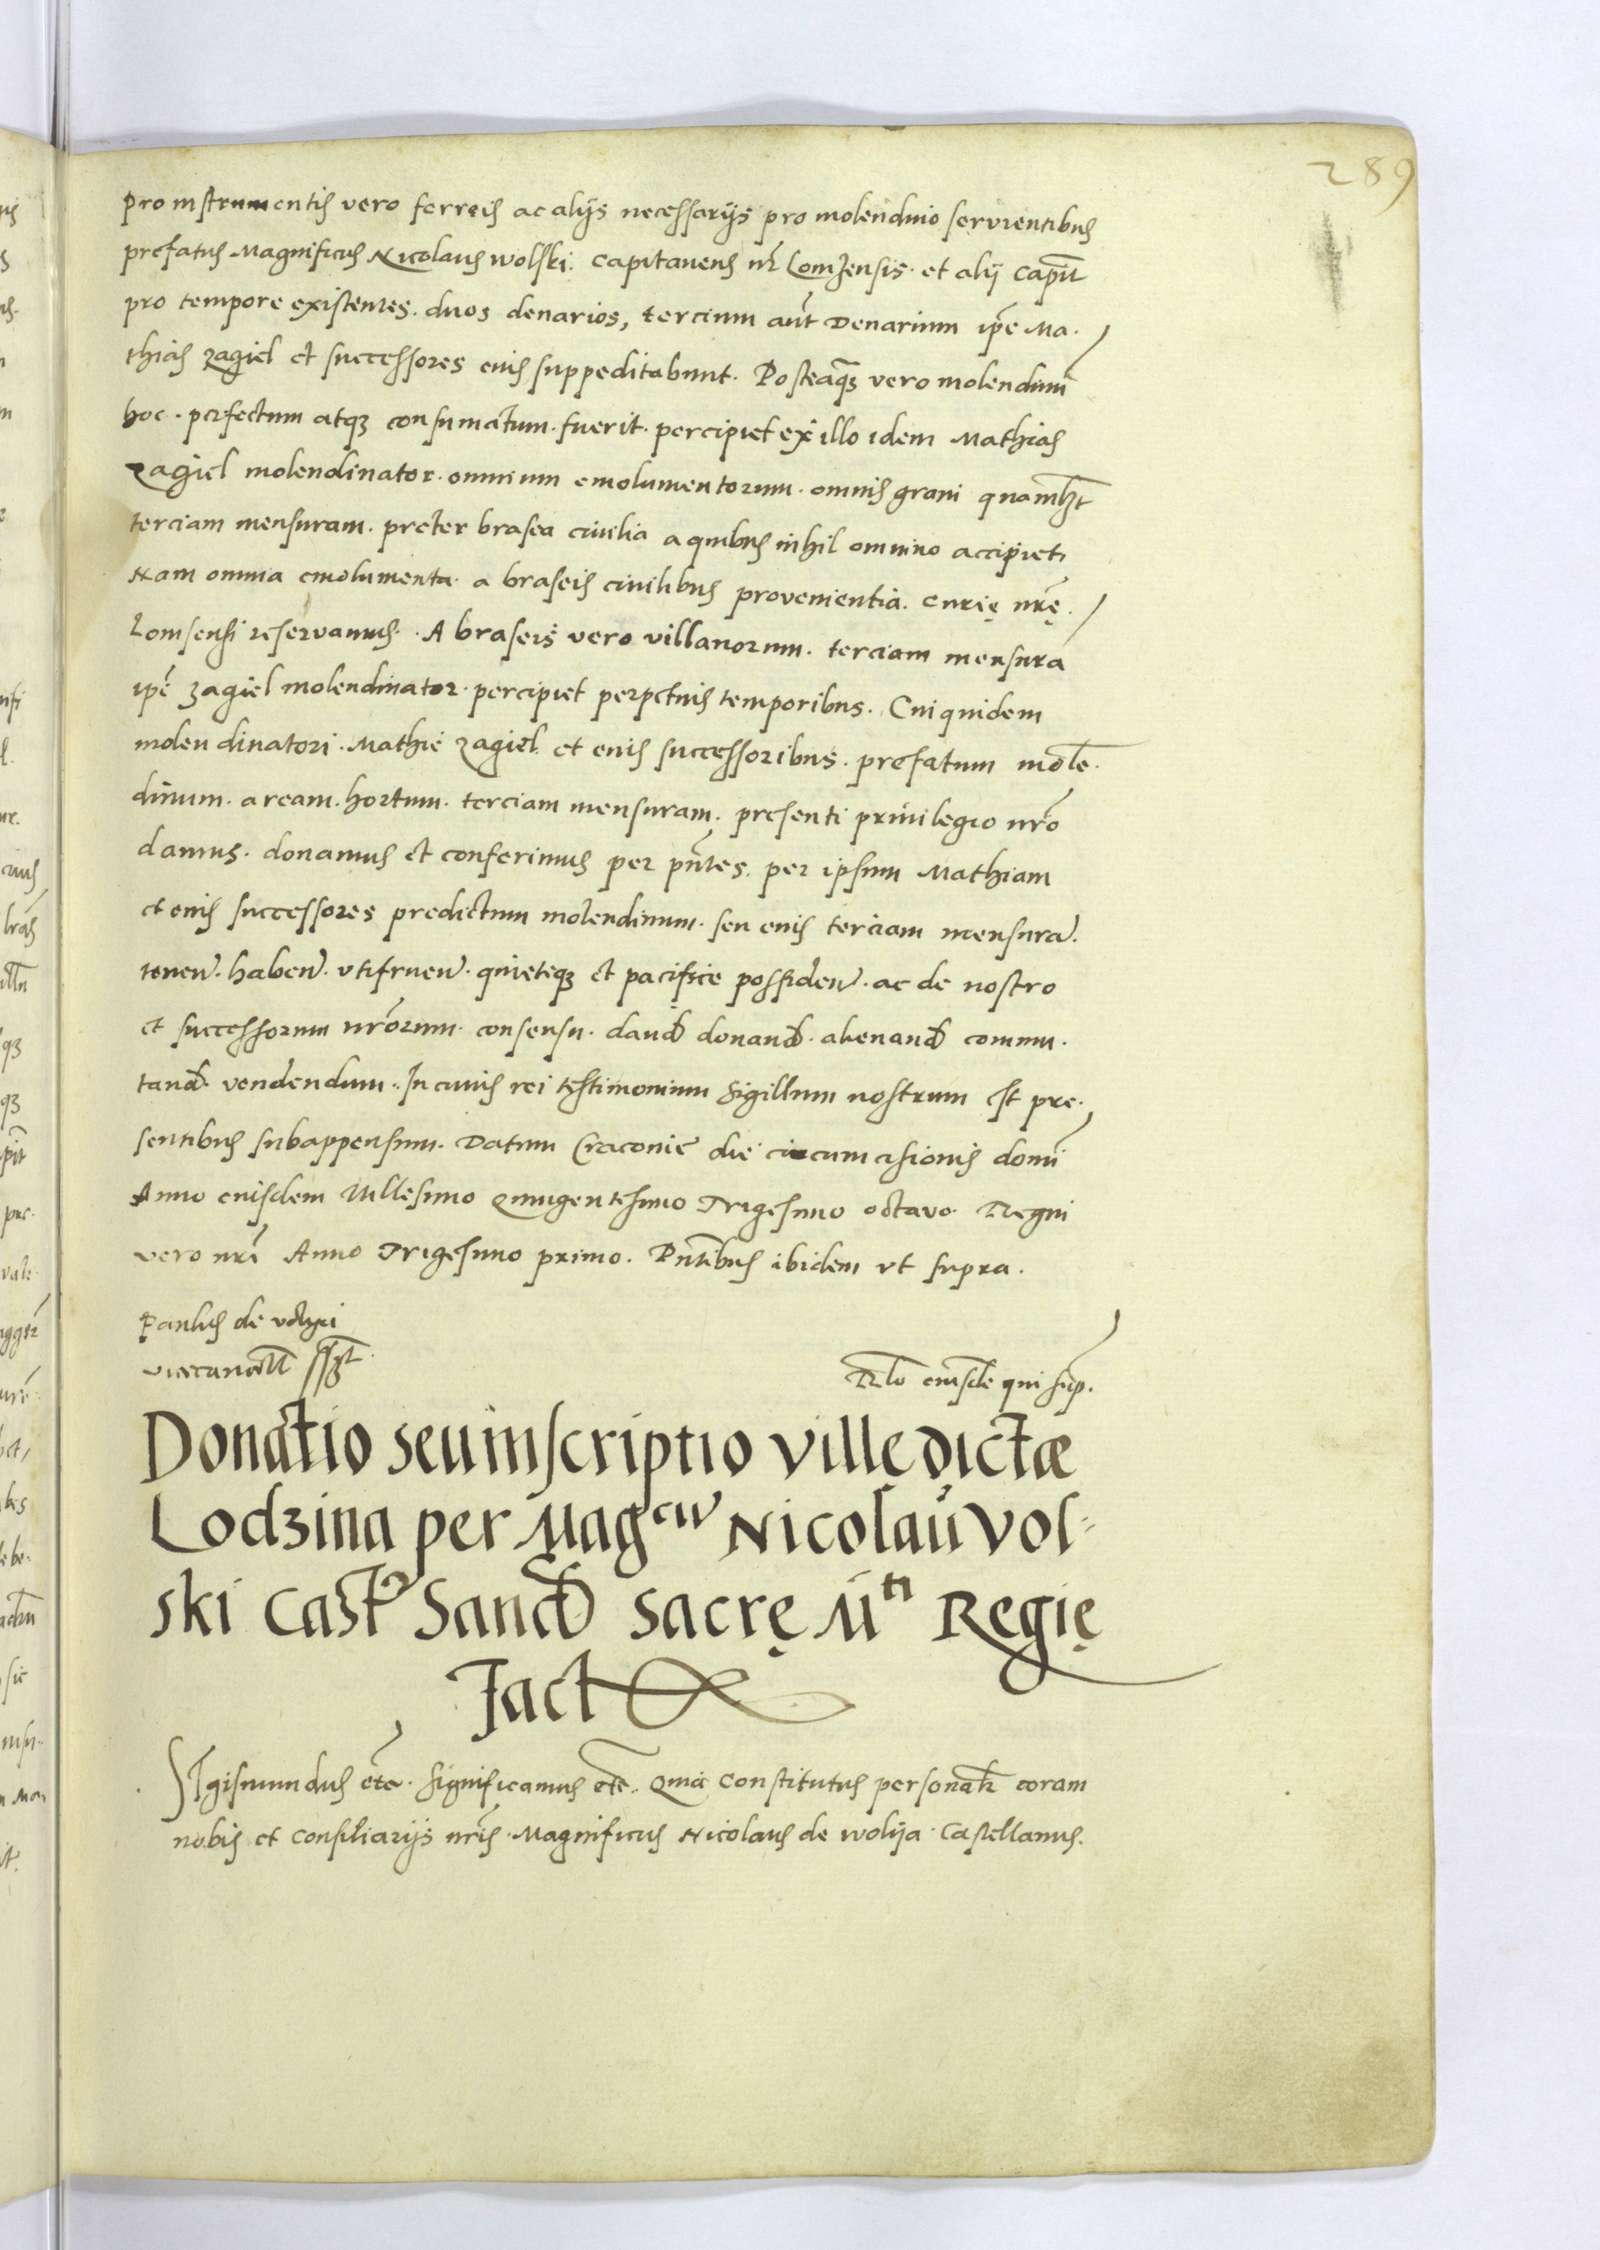 289
pro instrumentis vero ferreis ac alijs necessarijs pro molendino servientibus
prefatus Magnificus Nicolaus wolski. Capitaneus nr̃ Lomzensis. et alij Capit̃
pro tempore existentes. duos denarios, tercium aut̃ Denarium ip̃e Ma-
thias zagiel et successores eius suppeditabunt. Posteaq̃ʒ vero molendinũ
hoc. perfectum atqʒ consumatum. fuerit. percipiet ex illo idem Mathias
zagiel molendinator. omnium emolumentorum. omnis grani
terciam mensuram. preter brasea civilia a quibus nihil omnino accipiet,
Nam omnia emolumenta. a braseis civilibus provenientia. curię nr̃ę.
Lomsensi reservamus. A braseis vero villanorum. terciam mensura
ip̃e zagiel molendinator. percipiet perpetuis temporibus. Cui quidem
molendinatori. Mathie zagiel. et eius successoribus. prefatum mole-
dinum. aream. hortum. terciam mensuram. presenti privilegio nr̃o
damus. donamus et conferimus per pñtes. per ipsum Mathiam
et eius successores predictum molendinum. seu eius terciam mensura.
tenen̄. haben̄. utifruen̄. quieteqʒ et pacifice possiden̄. ac de nostro
et successorum nr̃orum. consensu. dand̃ donand̃. alienand̃ commu-
tand̃. vendendum. In cuius rei testimonium Sigillum nostrum est pre-
sentibus subappensum. Datum Cracovie die circumcisionis domĩ
Anno eiusdem Millesimo Quingentesimo Trigesimo octavo. Regni
vero nr̃i Anno Trigesimo primo. Pñtibus ibidem ut supra.
Paulus de volski
vicecancell̃ sszt
Rlo eiusdẽ qui sup̃.
Donatio seu inscriptio villę dictæ
Lodzina per Magcu Nicolaũ Vol-
ski Cast̃ Sand̃ sacrę Mti Regię
fact
SIgismundus etc̃. Significamus etc̃. Quia Constitutus personal̃r coram
nobis et Consiliarijs nr̃is. Magnificus Nicolaus de wolija. Castellanus.